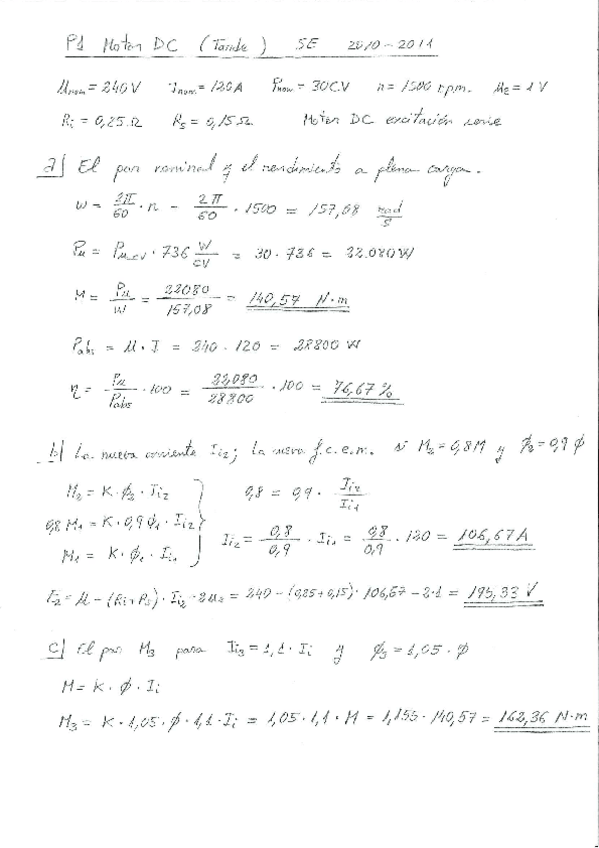 P1 Motor DC (Tarde) SE 2010-2011
Unom = 240V Inom = 120A Pnom = 30CV n = 1500 r.p.m. ue = 1 V
Ri = 0,25 Ω Rs = 0,15 Ω Motor DC excitación serie
a) El par nominal y el rendimiento a plena carga.
W = 2π/60 · n = 2π/60 · 1500 = 157,08 rad/s
Pu = Pu_CV · 736 W/CV = 30 · 736 = 22.080 W
M = Pu/W = 22080/157,08 = 140,57 N·m
Pabs = U · I = 240 · 120 = 28800 W
η = Pu/Pabs · 100 = 22.080/28800 · 100 = 76,67 %
b) La nueva corriente Ii2; la nueva f.c.e.m. si M2 = 0,8 M y ϕ2 = 0,9 ϕ
M2 = K · ϕ2 · Ii2 0,8 = 0,9 · Ii2/Ii1
0,8 M1 = K · 0,9 ϕ1 · Ii2
M1 = K · ϕ1 · Ii1 Ii2 = 0,8/0,9 · Ii1 = 0,8/0,9 · 120 = 106,67 A
E2 = U - (Ri + Rs) · Ii2 - 2ue = 240 - (0,25 + 0,15) · 106,67 - 2·1 = 195,33 V
c) El par M3 para Ii3 = 1,1 · Ii y ϕ3 = 1,05 · ϕ
M = K · ϕ · Ii
M3 = K · 1,05 · ϕ · 1,1 · Ii = 1,05 · 1,1 · M = 1,155 · 140,57 = 162,36 N·m